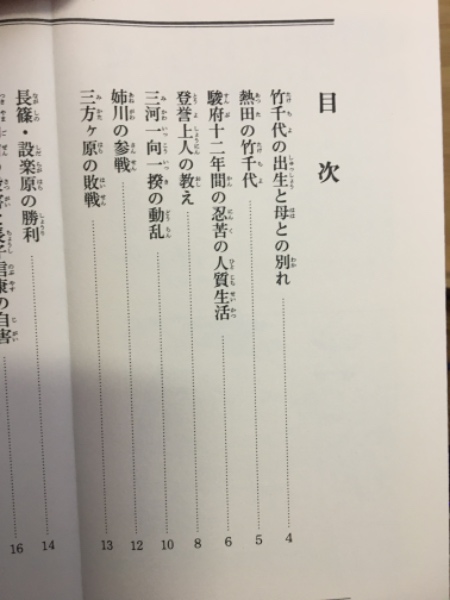 目次
竹千代の出生と母との別れ 4
熱田の竹千代 5
駿府十二年間の忍苦の人質生活 6
登誉上人の教え 8
三河一向一揆の動乱 10
姉川の参戦 12
三方ヶ原の敗戦 13
長篠・設楽原の勝利 14
信康の自害 16